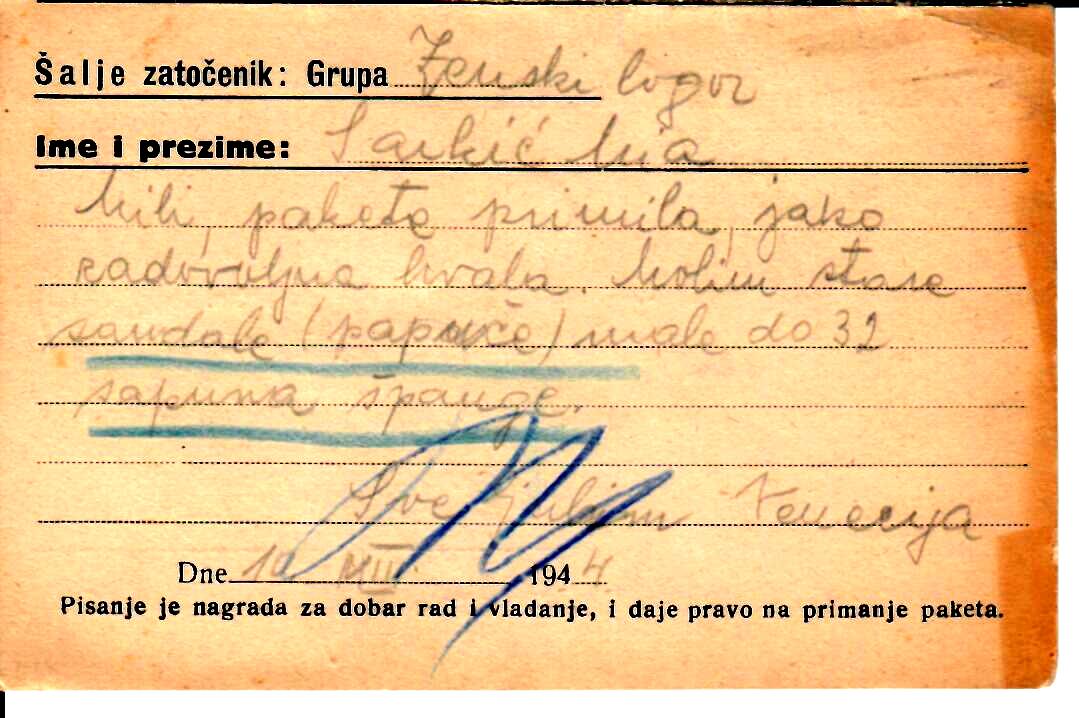 Šalje zatočenik: Grupa Ženski logor
Ime i prezime: Mia
Mili, pakete primila, jako
zadovoljna hvala. Molim stare
sandale (papuče) male do 32
sapuna špange.
Sve ljubim Venecija
Dne 10 1944
Pisanje je nagrada za dobar rad i vladanje, i daje pravo na primanje paketa.